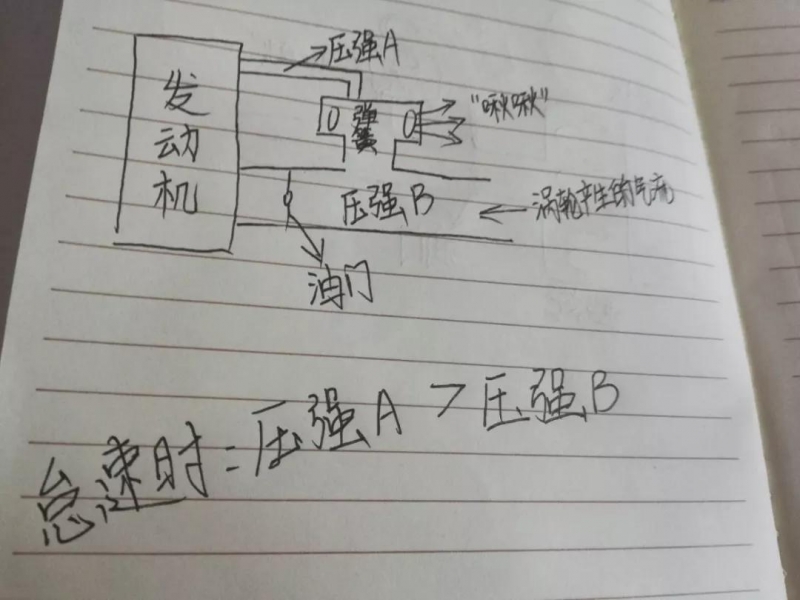 压强A
发动机
弹簧
"啾啾"
压强B
涡轮产生的气流
油门
怠速时：压强A > 压强B